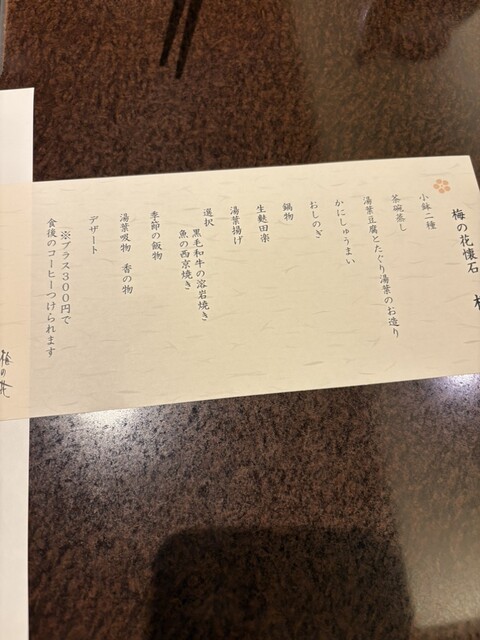 梅の花懐石
小鉢二種
茶碗蒸し
湯葉豆腐とたぐり湯葉のお造り
かにしゅうまい
おしのぎ
鍋物
生麩田楽
湯葉揚げ
選択 黒毛和牛の溶岩焼き
魚の西京焼き
季節の飯物
湯葉吸物 香の物
デザート
※プラス300円で
食後のコーヒーつけられます
梅の花